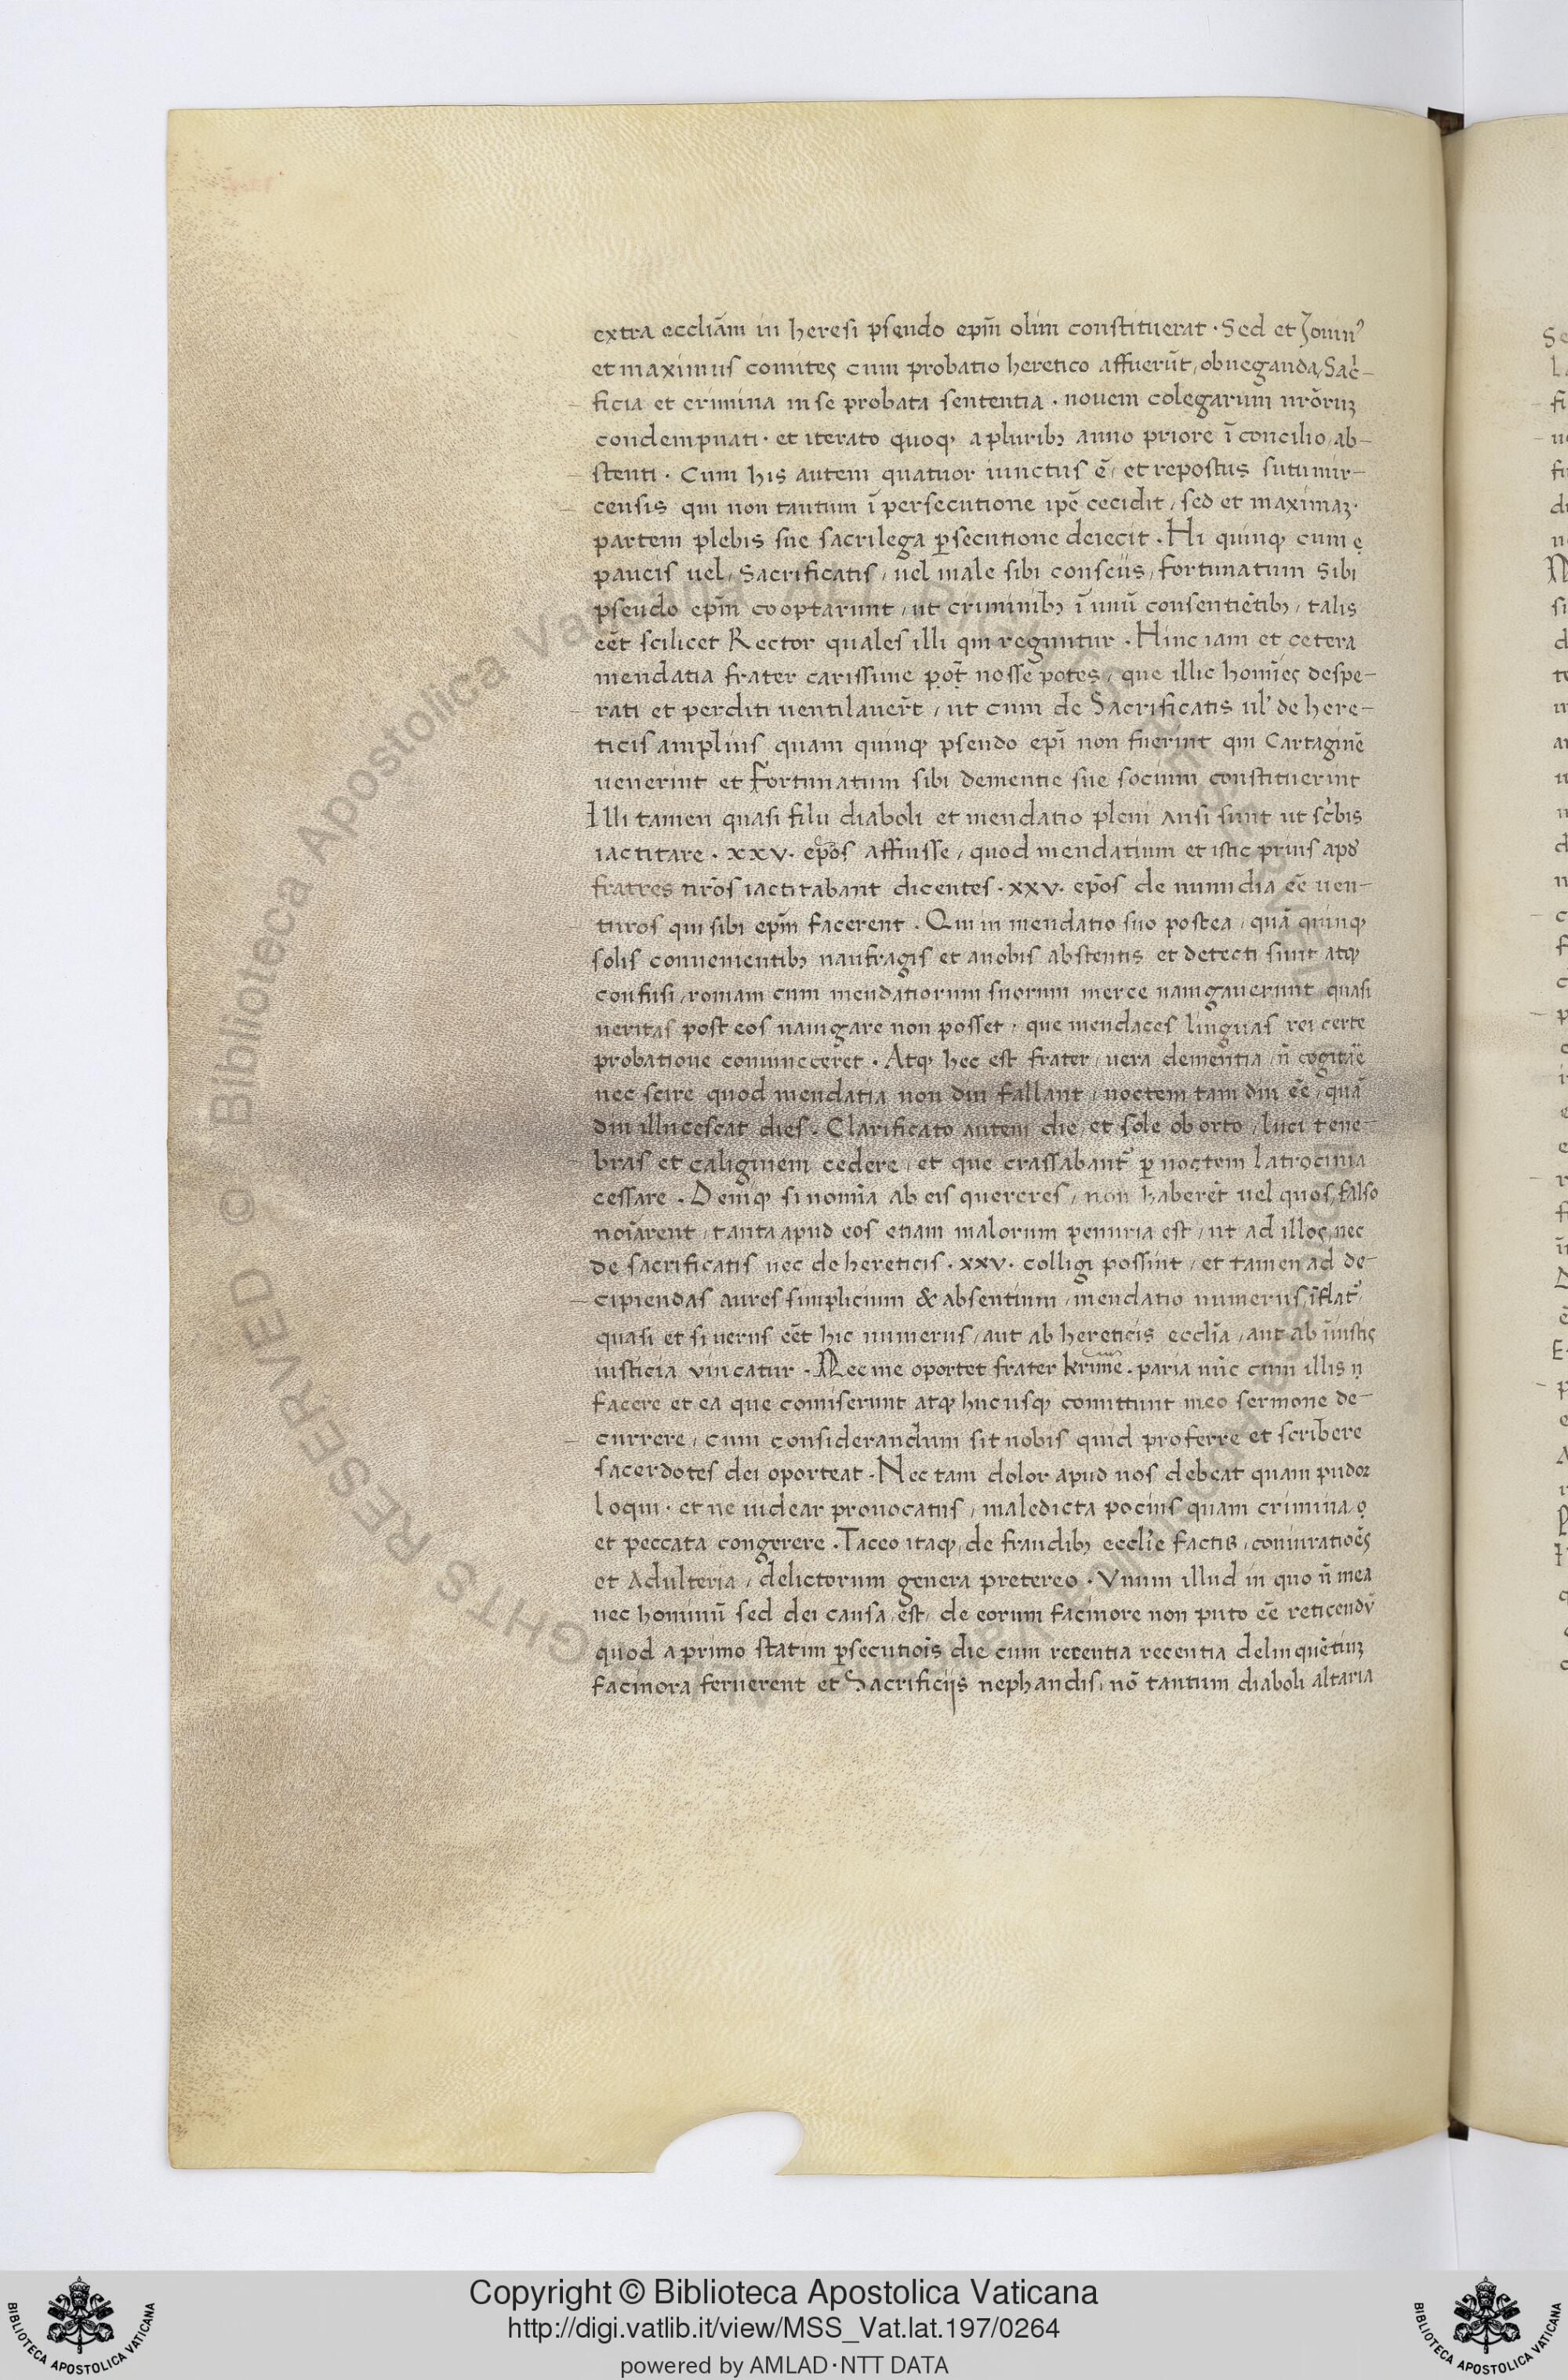 extra eccliām in heresi pseudo ep̄m olim constituerat · Sed et Jouin⁹
et maximus comites cum probatio heretico affuerūt, ob neganda, Sac̓-
ficia et crimina in se probata sententia · nouem colegarum nrōrꝝ
condempnati · et iterato quoqꝫ a pluribꝫ anno priore ī concilio, ab-
stenti · Cum his autem quatuor iunctus ē, et repostus sutumir-
censis qui non tantum ī persecutione ipē cecidit, sed et maximaꝫ ·
partem plebis sue sacrilega ꝑsecutione deiecit · Hi quinqꝫ cum
paucis uel, Sacrificatis, uel male sibi consciis, fortunatum sibi
pseudo ep̄m cooptarunt, ut criminibꝫ ī unū consentiētibꝫ, talis
eēt scilicet Rector quales illi qui reguntur · Hinc iam et cetera
mendatia frater carissime pot̄ nosse potes, que illic homīes despe-
rati et perditi uentilauer̄t, ut cum de Sacrificatis ul̓ de here-
ticis amplius quam quinqꝫ pseudo epī non fuerint qui Cartaginē
uenerint et Fortunatum sibi dementie sue socium constituerint
Illi tamen quasi filii diaboli et mendatio pleni ausi sunt ut sc̓bis
iactitare · xxv · ep̄os affuisse, quod mendatium et istic prius apd̓
fratres nrōs iactitabant dicentes · xxv · ep̄os de numidia eē uen-
turos qui sibi ep̄m facerent · Qui in mendatio suo postea, quā quinqꝫ
solis conuenientibꝫ naufragis et a nobis abstentis et detecti sunt atqꝫ
confusi, romam cum mendatiorum suorum merce nauigauerunt quasi
ueritas post eos nauigare non posset, que mendaces linguas rei certe
probatione conuinceeret · Atqꝫ hec est frater, uera dementia, n̄ cogitaē
nec scire quod mendatia non diu fallant, noctem tam diu eē, quā
diu illucescat dies · Clarificato autem die, et sole oborto, luci tene-
bras et caliginem cedere, et que crassabant᷑ ꝑ noctem latrocinia
cessare · Deniqꝫ si nomīa ab eis quereres, non haberēt uel quos, falso
noīarent, tanta apud eos etiam malorum penuria est, ut ad illos, nec
de sacrificatis nec de hereticis · xxv · colligi possint, et tamen ad de-
cipiendas aures simplicium & absentium, mendatio numerus, īflat᷑,
quasi et si uerus eēt hic numerus, aut ab hereticis ecclīa, aut ab īiustis
iusticia vincatur · Nec me oportet frater krīmē · paria nūc cum illis n̄
facere et ea que comiserunt atqꝫ hucusqꝫ comittunt meo sermone de-
currere, cum considerandum sit nobis quid proferre et scribere
sacerdotes dei oporteat · Nec tam dolor apud nos debeat quam pudor
loqui · et ne uidear prouocatus, maledicta pocius quam crimina
et peccata congerere · Taceo itaqꝫ, de fraudibꝫ ecclīe factis, coniuratioēs
et Adulteria, delictorum genera pretereo · Vnum illud in quo n̄ mea
nec hominū sed dei causa, ēst, de eorum facinore non puto eē reticendū
quod a primo statim ꝑsecutiois die cum recentia recentia delinquētiuꝫ
facinora feruerent et Sacrificijs nephandis, nō tantum diaboli altaria
Copyright © Biblioteca Apostolica Vaticana
http://digi.vatlib.it/view/MSS_Vat.lat.197/0264
powered by AMLAD·NTT DATA